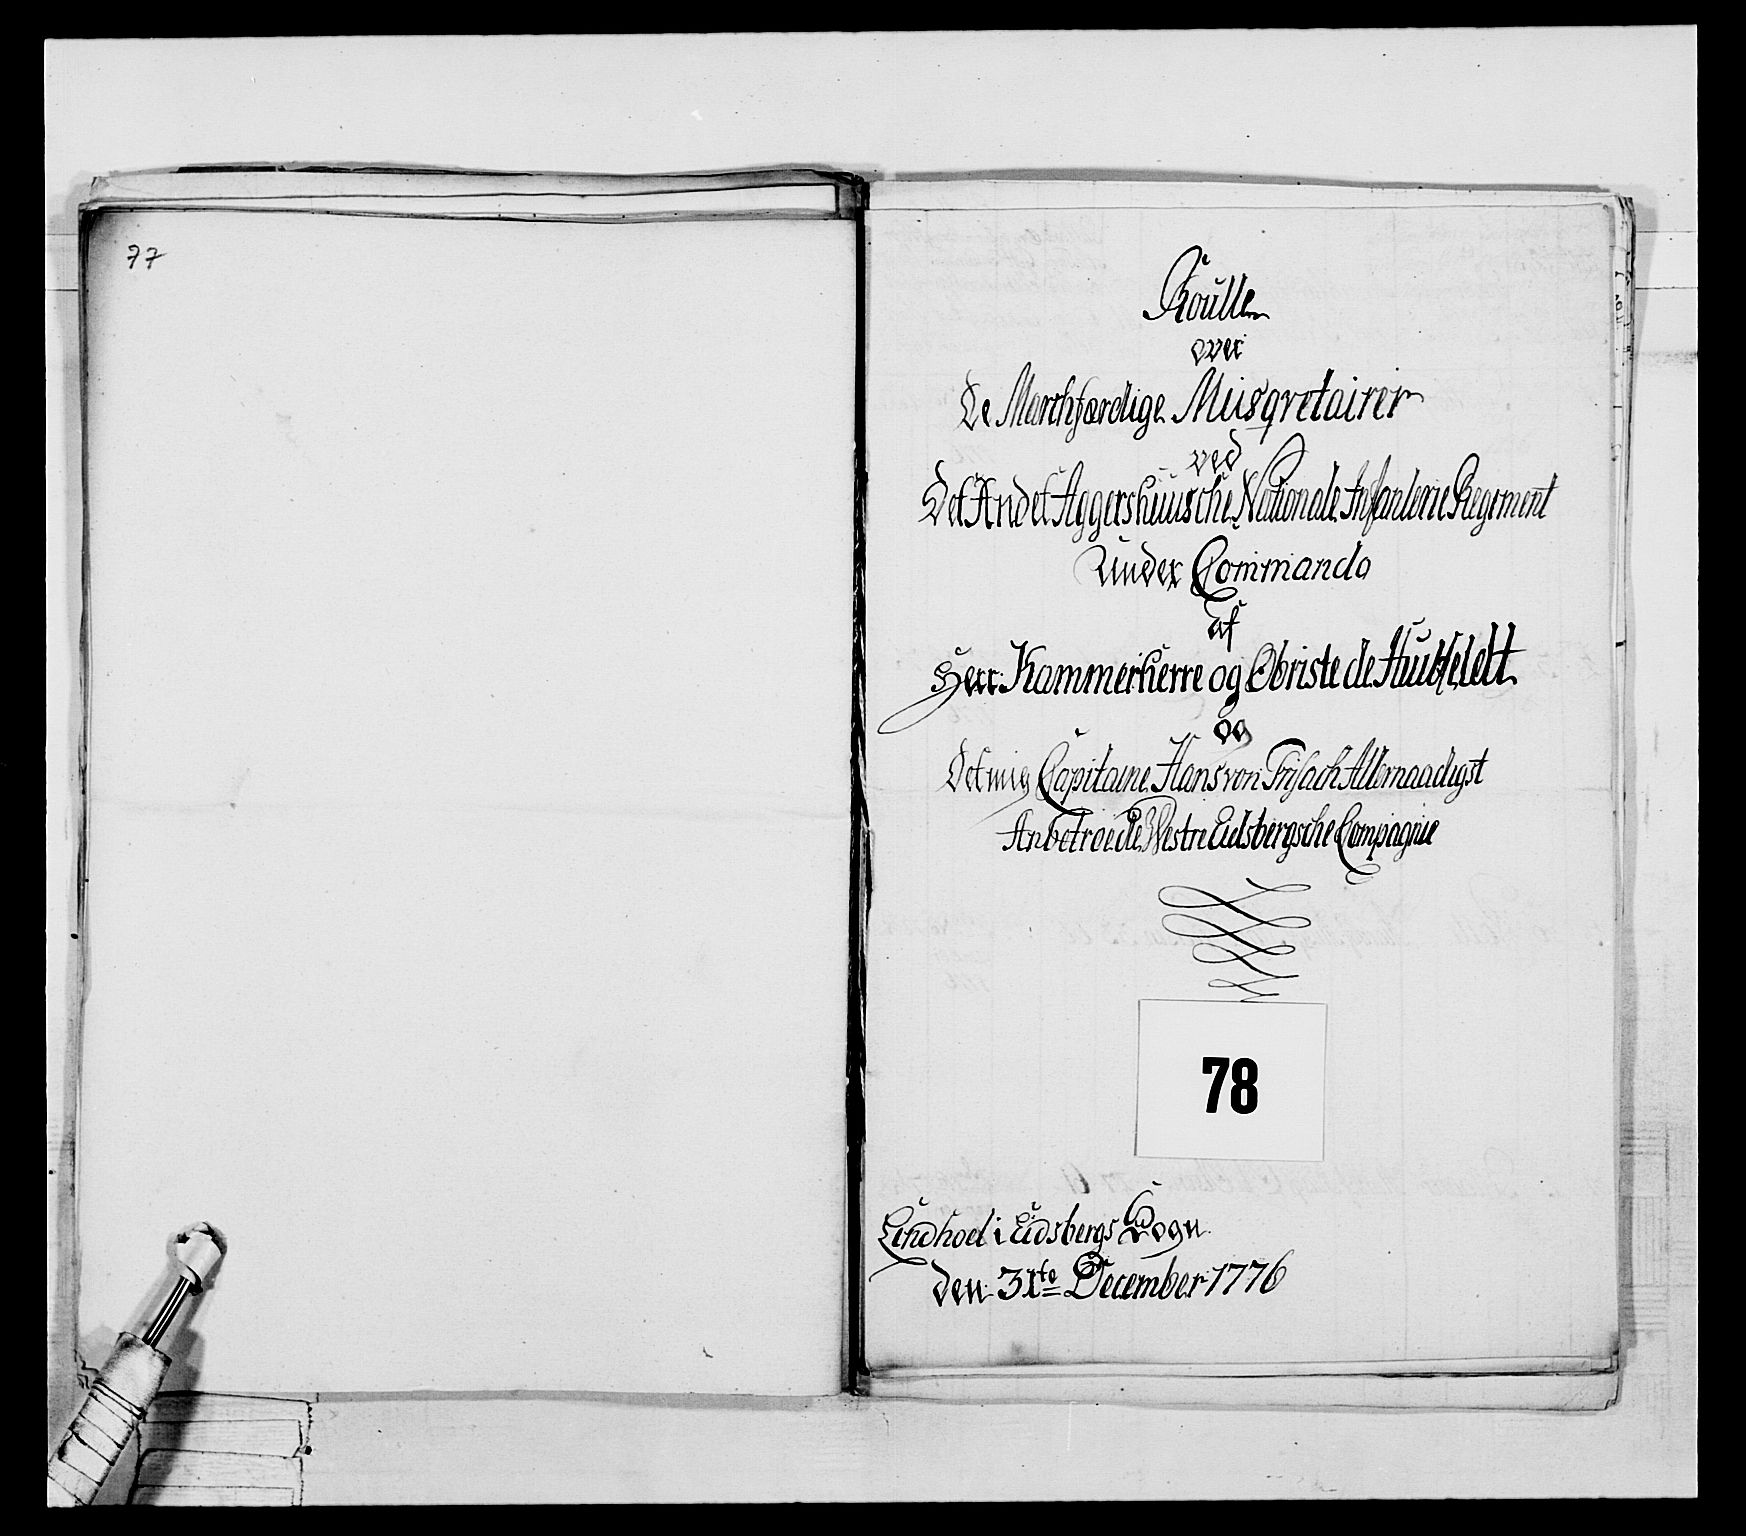 77
Roulle
over
De Marchfærdige Musqvetairer
ved
Det Andet Aggershuusche Nationale Infanterie Regement
Under Commando
af
Herr Kammerherre og Obriste de Huitfeldt
og
Det mig Capitaine Hans von Frisach Allernaadigst
Anbetroede Westre Eidsbergsche Compagnie
78
Lindhoel i Eidsbergs Sogn
den 31te December 1776